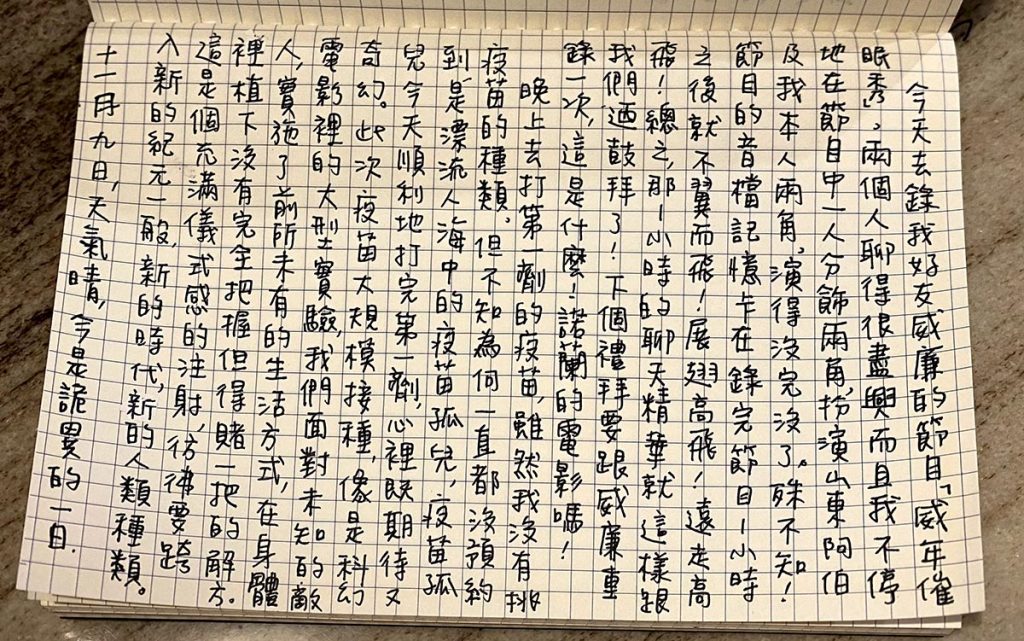 今天去錄我好友威廉的節目「威年催
眠秀」,兩個人聊得很盡興而且我不停
地在節目中一人分飾兩角,扮演山東阿伯
及我本人兩角,演得沒完沒了。殊不知!
節目的音檔記憶卡在錄完節目1小時
之後就不翼而飛!展翅高飛!遠走高
飛!總之,那1小時的聊天精華就這樣跟
我們迺鼓拜了!下個禮拜要跟威廉重
錄一次,這是什麼!諾蘭的電影嗎!
晚上去打第一劑的疫苗,雖然我沒有挑
疫苗的種類。但不知為何一直都沒預約
到,是漂流人海中的疫苗孤兒,疫苗孤
兒今天順利地打完第一劑,心裡既期待又
奇幻。此次疫苗大規模接種,像是科幻
電影裡的大型實驗,我們面對未知的敵
人,實施了前所未有的生活方式,在身體
裡植下沒有完全把握但得賭一把的解方。
這是個充滿儀式感的注射,彷彿要跨
入新的紀元一般,新的時代,新的人類種類。
十一月九日,天氣晴,今是詭異的一日.